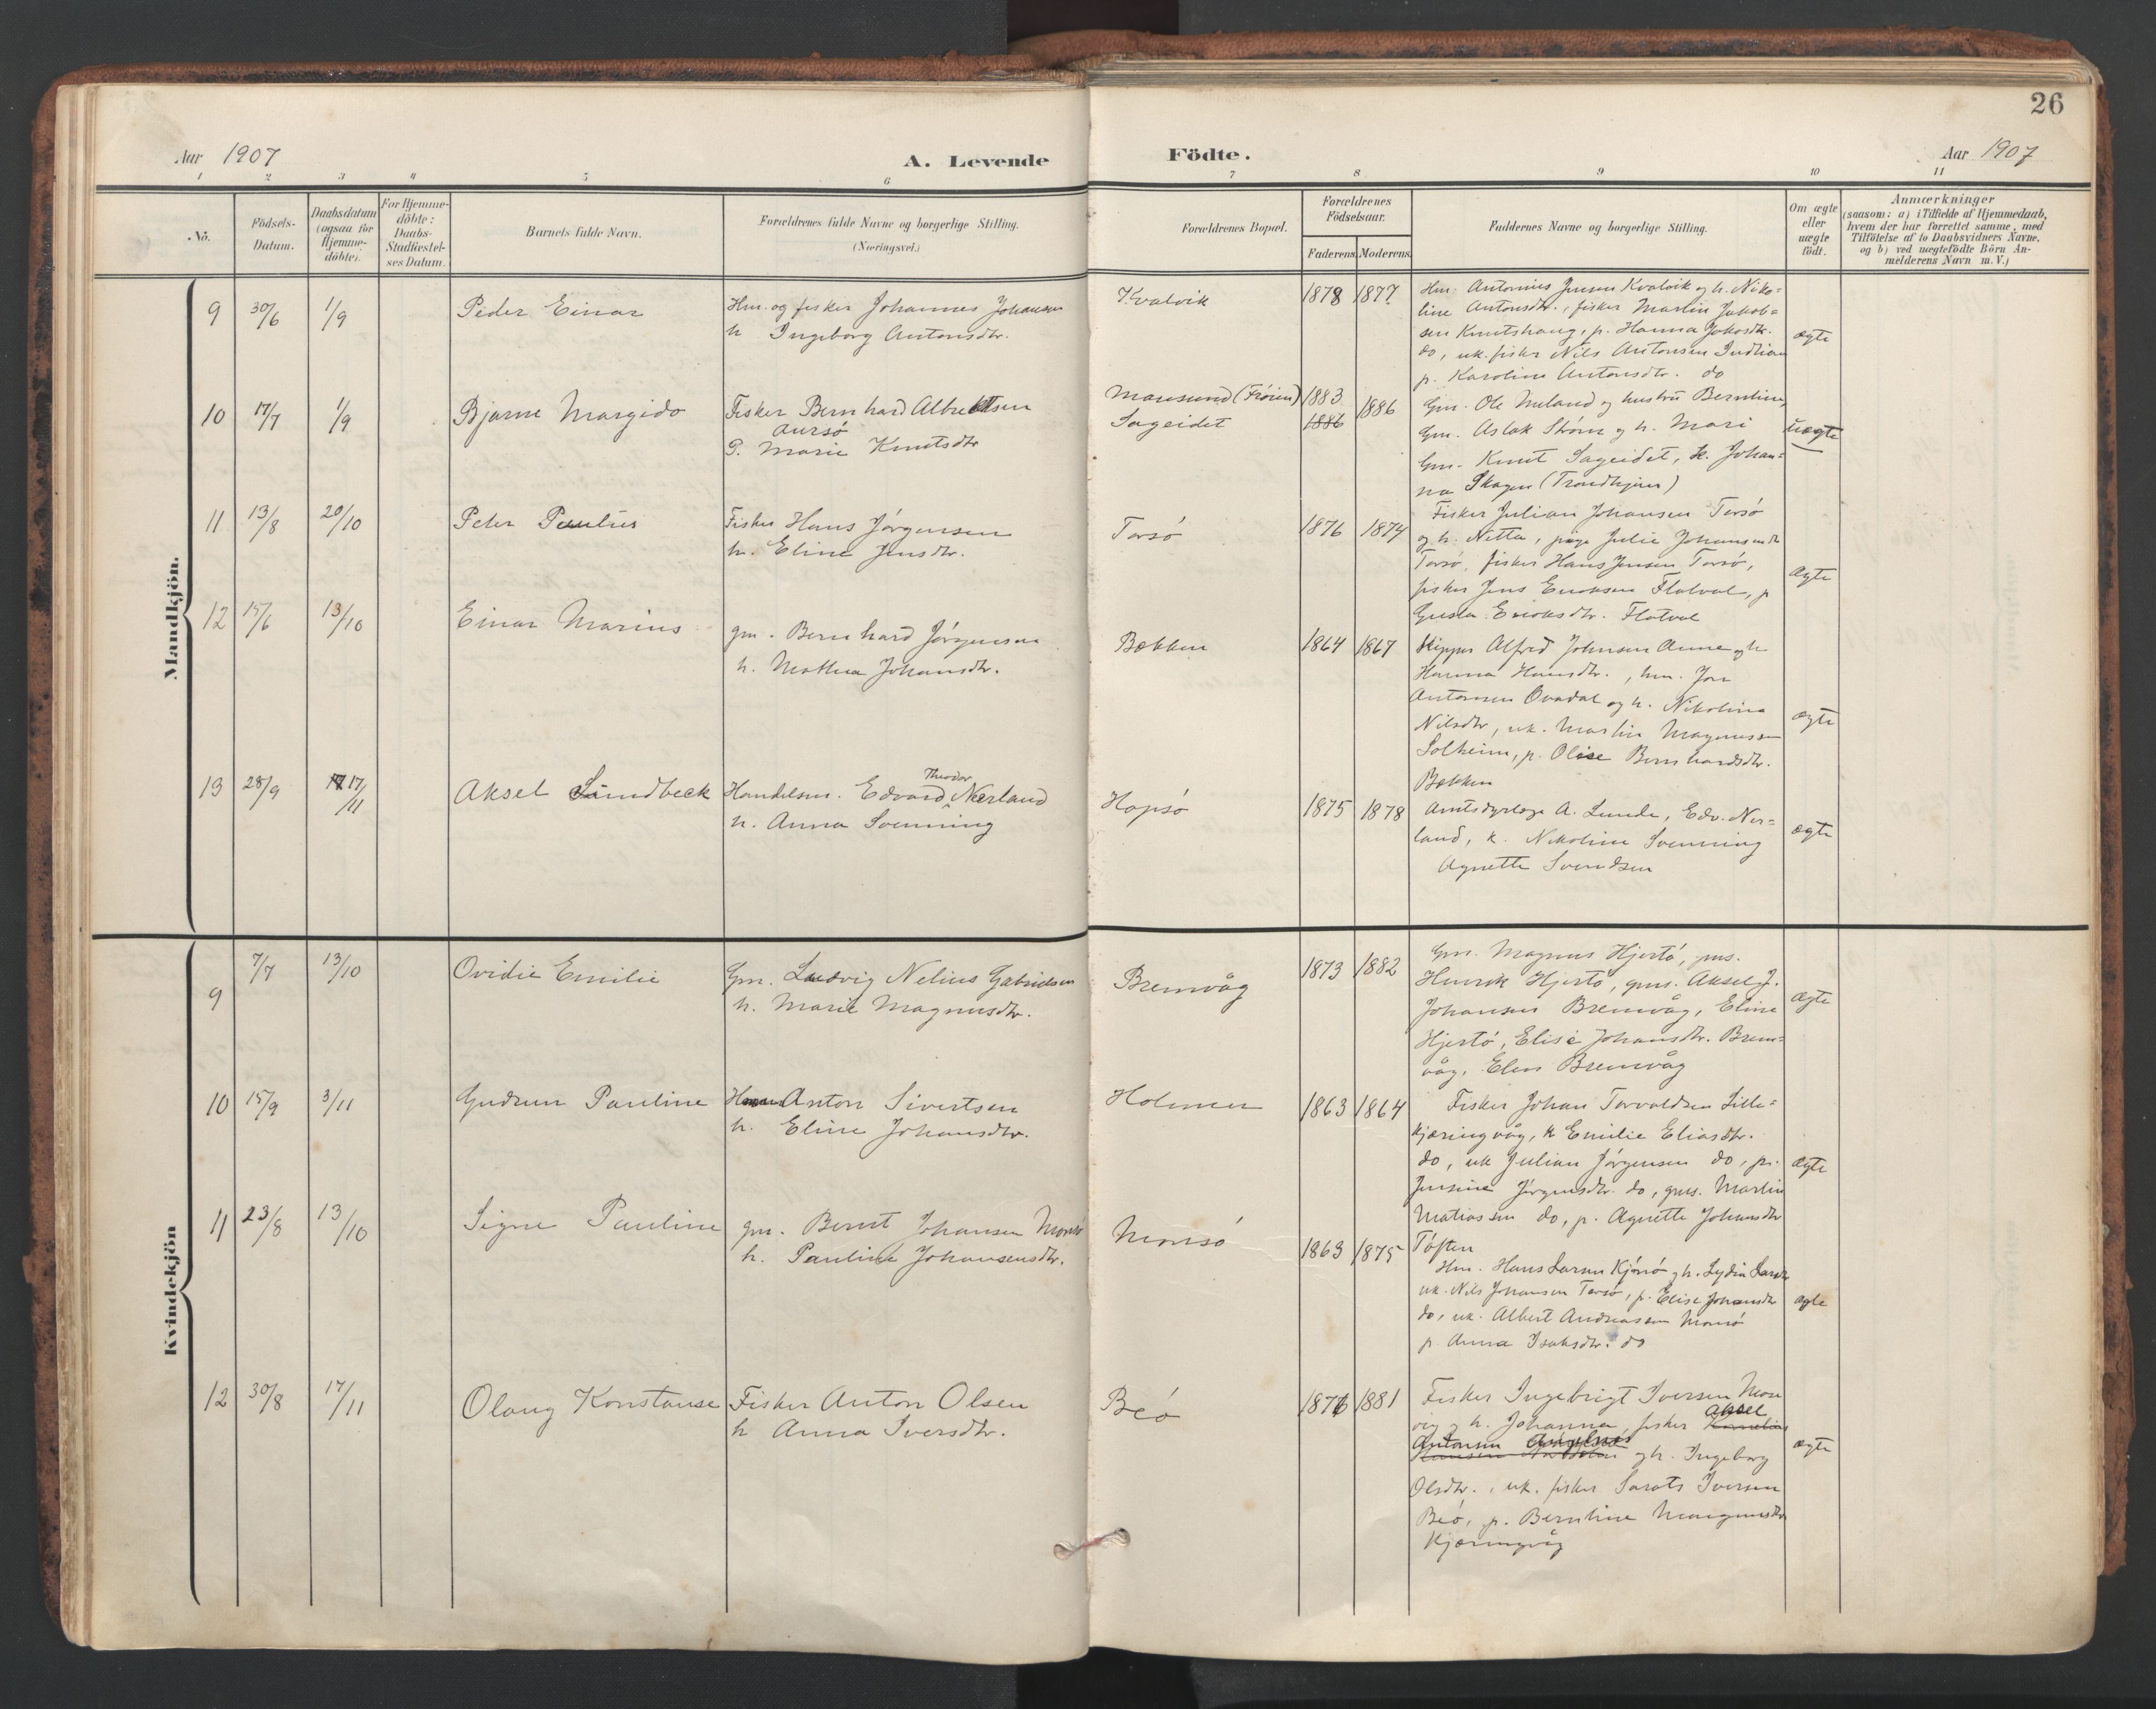 26
Aar 1907
A. Levende
Födte.
Aar 1907
1 2 3 4 5 6 7 8 9 10 11
No.
Födsels-
Datum.
Daabsdatum
(ogsaa for
Hjemme-
döbte).
For Hjemme-
döbte:
Daabs-
Stadfæstel-
ses Datum.
Barnets fulde Navn.
Forældrenes fulde Navne og borgerlige Stilling.
(Næringsvei.)
Forældrenes Bopæl.
Forældrenes
Födselsaar.
Faderens. Moderens.
Faddernes Navne og borgerlige Stilling.
Om ægte
eller
uægte
födt.
Anmærkninger
(saasom: a) i Tilfælde af Hjemmedaab,
hvem der har forrettet samme, med
Tilföielse af to Daabsvidners Navne,
og b) ved uægtefödte Börn An-
melderens Navn m. V.)
Mandkjön.
9 30/6 1/9 Peder Einar
Hm. og fisker Johannes Johansen
h. Ingeborg Antonsdtr.
Kvalvik 1878 1877
Hm. Antonius Jensen Kvalvik og h. Niko=
line Antonsdtr., fisker Martin Jakob=
sen Knutshaug, p. Hanna Jakobsdtr.
do, uk. fisker Nils Antonsen Indlian
p. Karoline Antonsdtr. do
ægte
10 17/7 1/9 Bjarne Margido
Fisker Bernhard Albrektsen
Aursö
P. Marie Knutsdtr
Mausund (Fröien) 1883
Sageidet 1886 1886
Gm. Ole Uuland og hustru Berntine,
Gm. Aslak Ström og h. Mari
Gm. Knut Sageidet, k. Johan=
na Skagen (Trondhjem)
uægte
11 13/8 20/10 Peter Paulus
Fisker Hans Jörgensen
h. Eline Jensdtr.
Torsö 1876 1874
Fisker Julian Johansen Torsö
og h. Netta, pige Julie Johansendtr
Torsö, fisker Hans Jensen Torsö,
fisker Jens Eriksen Flatval, p
Gusta Eriksdtr. Flatval
ægte
12 15/6 13/10 Einar Marius
gm. Bernhard Jörgensen
h. Mathea Johansdtr.
Bekken 1864 1867
Skipper Alfred Johnsen Aune og h
Hanna Hansdtr., hm. Jon
Antonsen Ovadal og h. Nikoline
Nilsdtr, uk. Martin Magnussen
Solheim, p. Olise Bernhardsdtr.
Bekken
ægte
13 28/9 17/11 Aksel Lundbeck
Handelsm. Edvard Theodor Nerland
h. Anna Svenning
Hopsö 1875 1878
Amtsdyrlæge A. Lunde, Edv. Ner=
land, k. Nikoline Svenning
Agnette Svendsen
ægte
Kvindekjön
9 7/7 13/10 Ovidie Emilie
Gm. Ludvig Nelius Gabrielsen
h. Marie Magnusdtr.
Bremvåg 1873 1882
Gm. Magnus Hjertö, gms.
Henrik Hjertö, gms. Aksel J.
Johansen Bremvåg, Eline
Hjertö, Elise Johansdtr. Brem=
våg, Elen Bremvåg
ægte
10 15/9 3/11 Gudrun Pauline
Hm Anton Sivertsen
h. Eline Johansdtr.
Holmen 1863 1864
Fisker Johan Torvaldsen Lille=
kjæringvåg, k Emilie Eliasdtr.
do, uk Julian Jörgensen do, p.
Jensine Jörgensdtr. do, gms. Martin
Matiassen do, p. Agnette Johansdtr
Töften
ægte
11 23/8 13/10 Signe Pauline
gm. Bernt Johansen Monsö
h. Pauline Johansensdtr.
Monsö 1863 1875
Hm. Hans Larsen Kjönsö og h. Lydia Larsdtr
uk. Nils Johansen Torsö, p. Elise Johansdtr
do, uk. Albert Andreassen Monsö
p. Anna Isaksdtr. do
ægte
12 30/8 17/11 Olaug Konstanse
Fisker Anton Olsen
h Anna Iversdtr.
Beö 1876 1881
Fisker Ingebrigt Iversen Mose
vig og h. Johanna, fisker Aksel
Antonsen og h. Ingeborg
Olsdtr., uk. fisker Sarats Iversen
Beö, p. Berntine Magnusdtr
Kjæringvåg
ægte